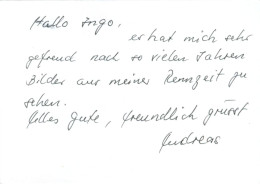 Hallo Ingo,
er hat mich sehr
gefreud nach so vielen Jahren
Bilder aus meiner Rennzeit zu
sehen.
Alles gute, freundlich grüsst
Andreas